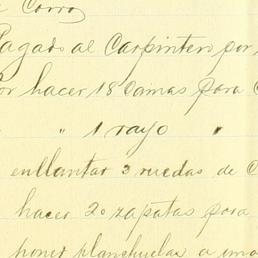 Corro
Pagado al Carpintero por
Por hacer 18 Camas para C
" " 1 rayo "
enllantar 3 ruedas de C
hacer 20 zapatas para
poner planchuelas a una